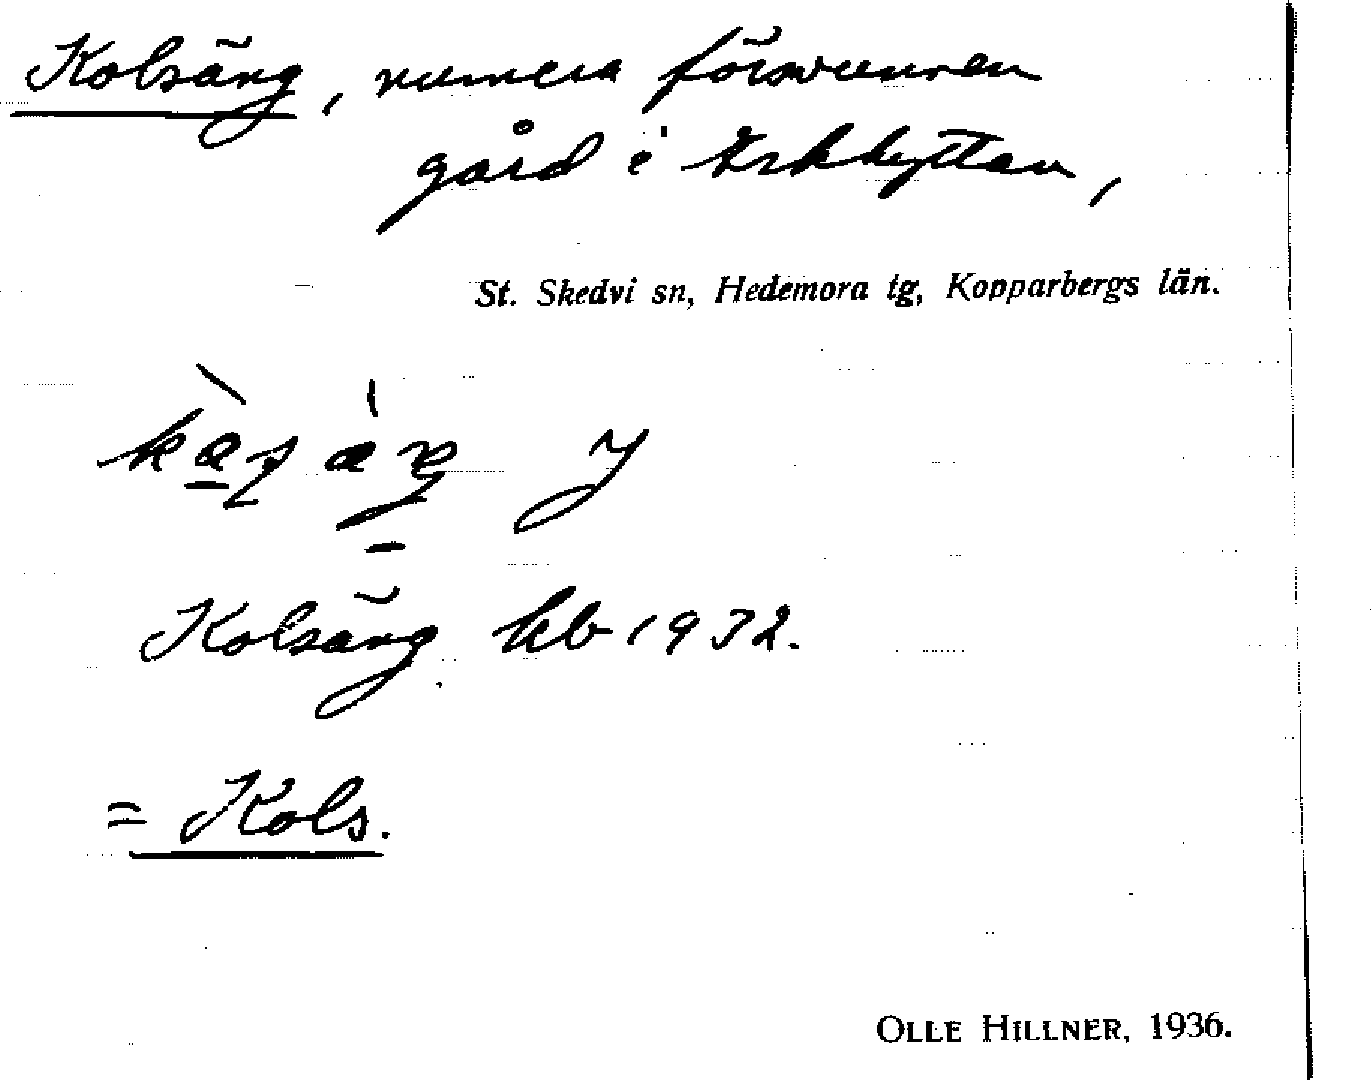 Kolsäng, numera försvunnen
gård i Erkhyttan,
St. Skedvi sn, Hedemora tg, Kopparbergs län.
Kolsäng kb 1932.
= Kols.
OLLE HILLNER, 1936.